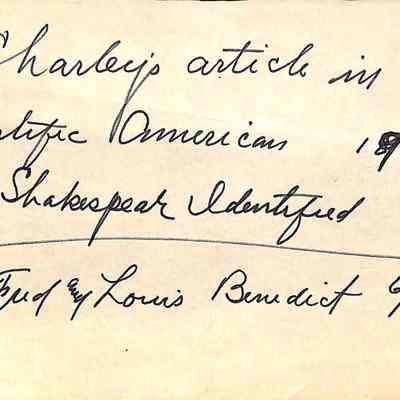 Charley's article in
ntific American 19
Shakespear Identified
Fred & Louis Benedict